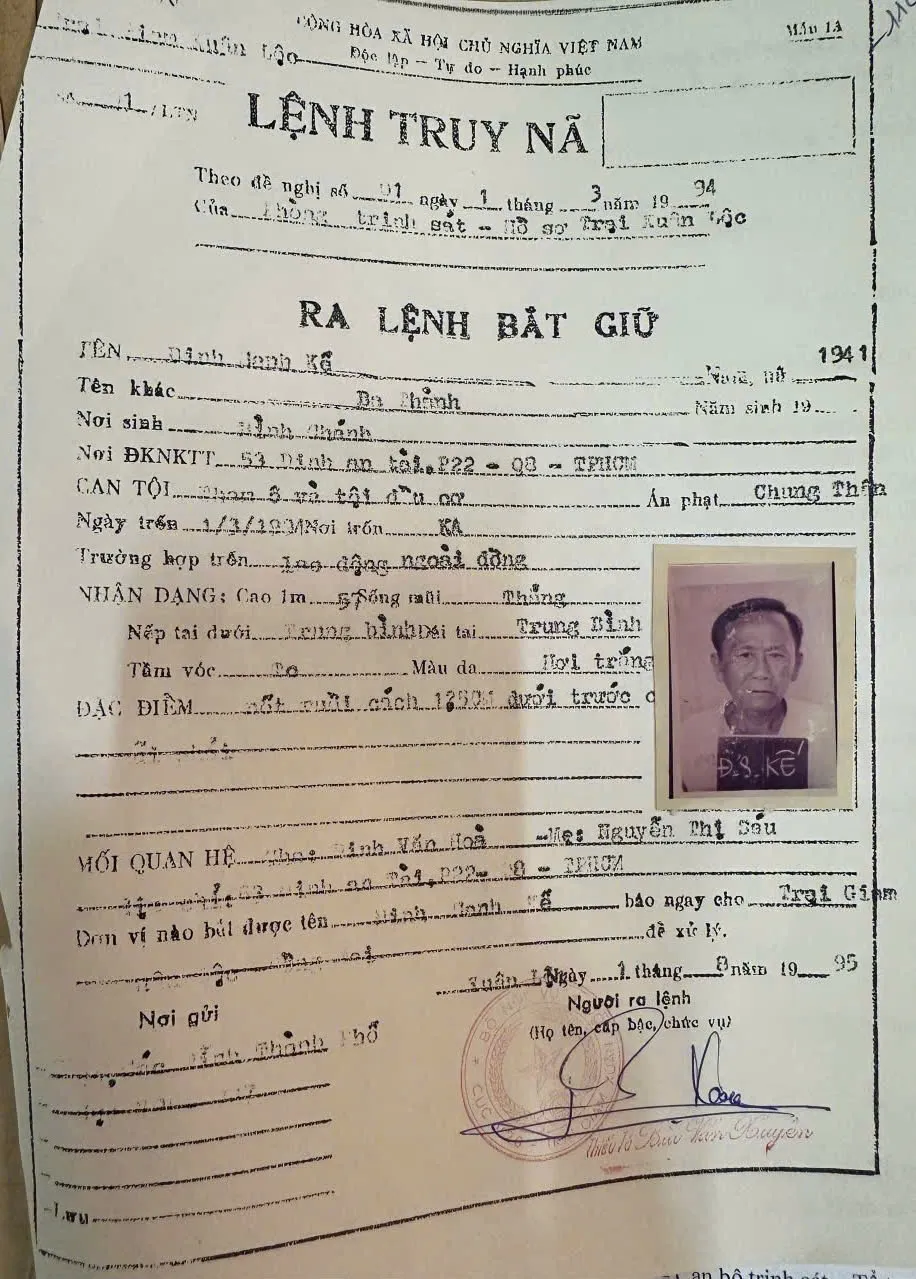 CỘNG HÒA XÃ HỘI CHỦ NGHĨA VIỆT NAM
Mẫu 1A
Xuân Lộc
Độc lập - Tự do - Hạnh phúc
/LTN
LỆNH TRUY NÃ
Theo đề nghị số 01 ngày 1 tháng 3 năm 19 94
Của Phòng trinh sát - Hồ sơ Trại Xuân Lộc
RA LỆNH BẮT GIỮ
TÊN Dinh Danh Kế Nam, nữ 1941
Tên khác Ba Thành Năm sinh 19
Nơi sinh Bình Chánh
Nơi ĐKNKTT 53 Dinh an tài, P22 - Q8 - TPHCM
CAN TỘI và tội đầu cơ Án phạt Chung Thân
Ngày trốn 1/3/1994 Nơi trốn KA
Trường hợp trốn Lao động ngoài đồng
NHẬN DẠNG: Cao 1m 57 Sống mũi Thẳng
Nếp tai dưới Trung bình Dái tai Trung Bình
Tầm vóc Màu da Hơi trắng
ĐẶC ĐIỂM nốt ruồi cách dưới trước
Đ.S. KẾ
MỐI QUAN HỆ Cha: Dinh Văn Hoà -Mẹ: Nguyễn Thị Sáu
53 Dinh an Tài, P22- Q8 - TPHCM
Đơn vị nào bắt được tên Dinh Danh Kế báo ngay cho Trại Giam
để xử lý.
Xuân Lộc Ngày 1 tháng 8 năm 19 95
Nơi gửi
Người ra lệnh
(Họ tên, cấp bậc, chức vụ)
Thành Phố
Lưu